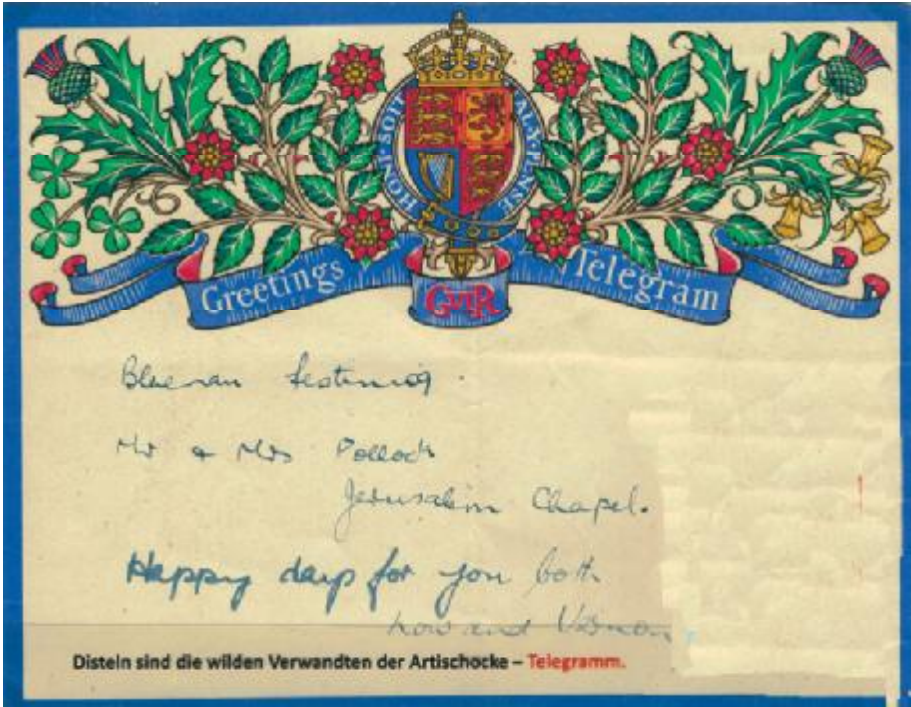 HONI·SOIT AL·Y·PENSE
Greetings GVIR Telegram
Blaenau Festiniog.
Mr & Mrs Pollock
Jerusalem Chapel.
Happy days for you both
and
Disteln sind die wilden Verwandten der Artischocke – Telegramm.